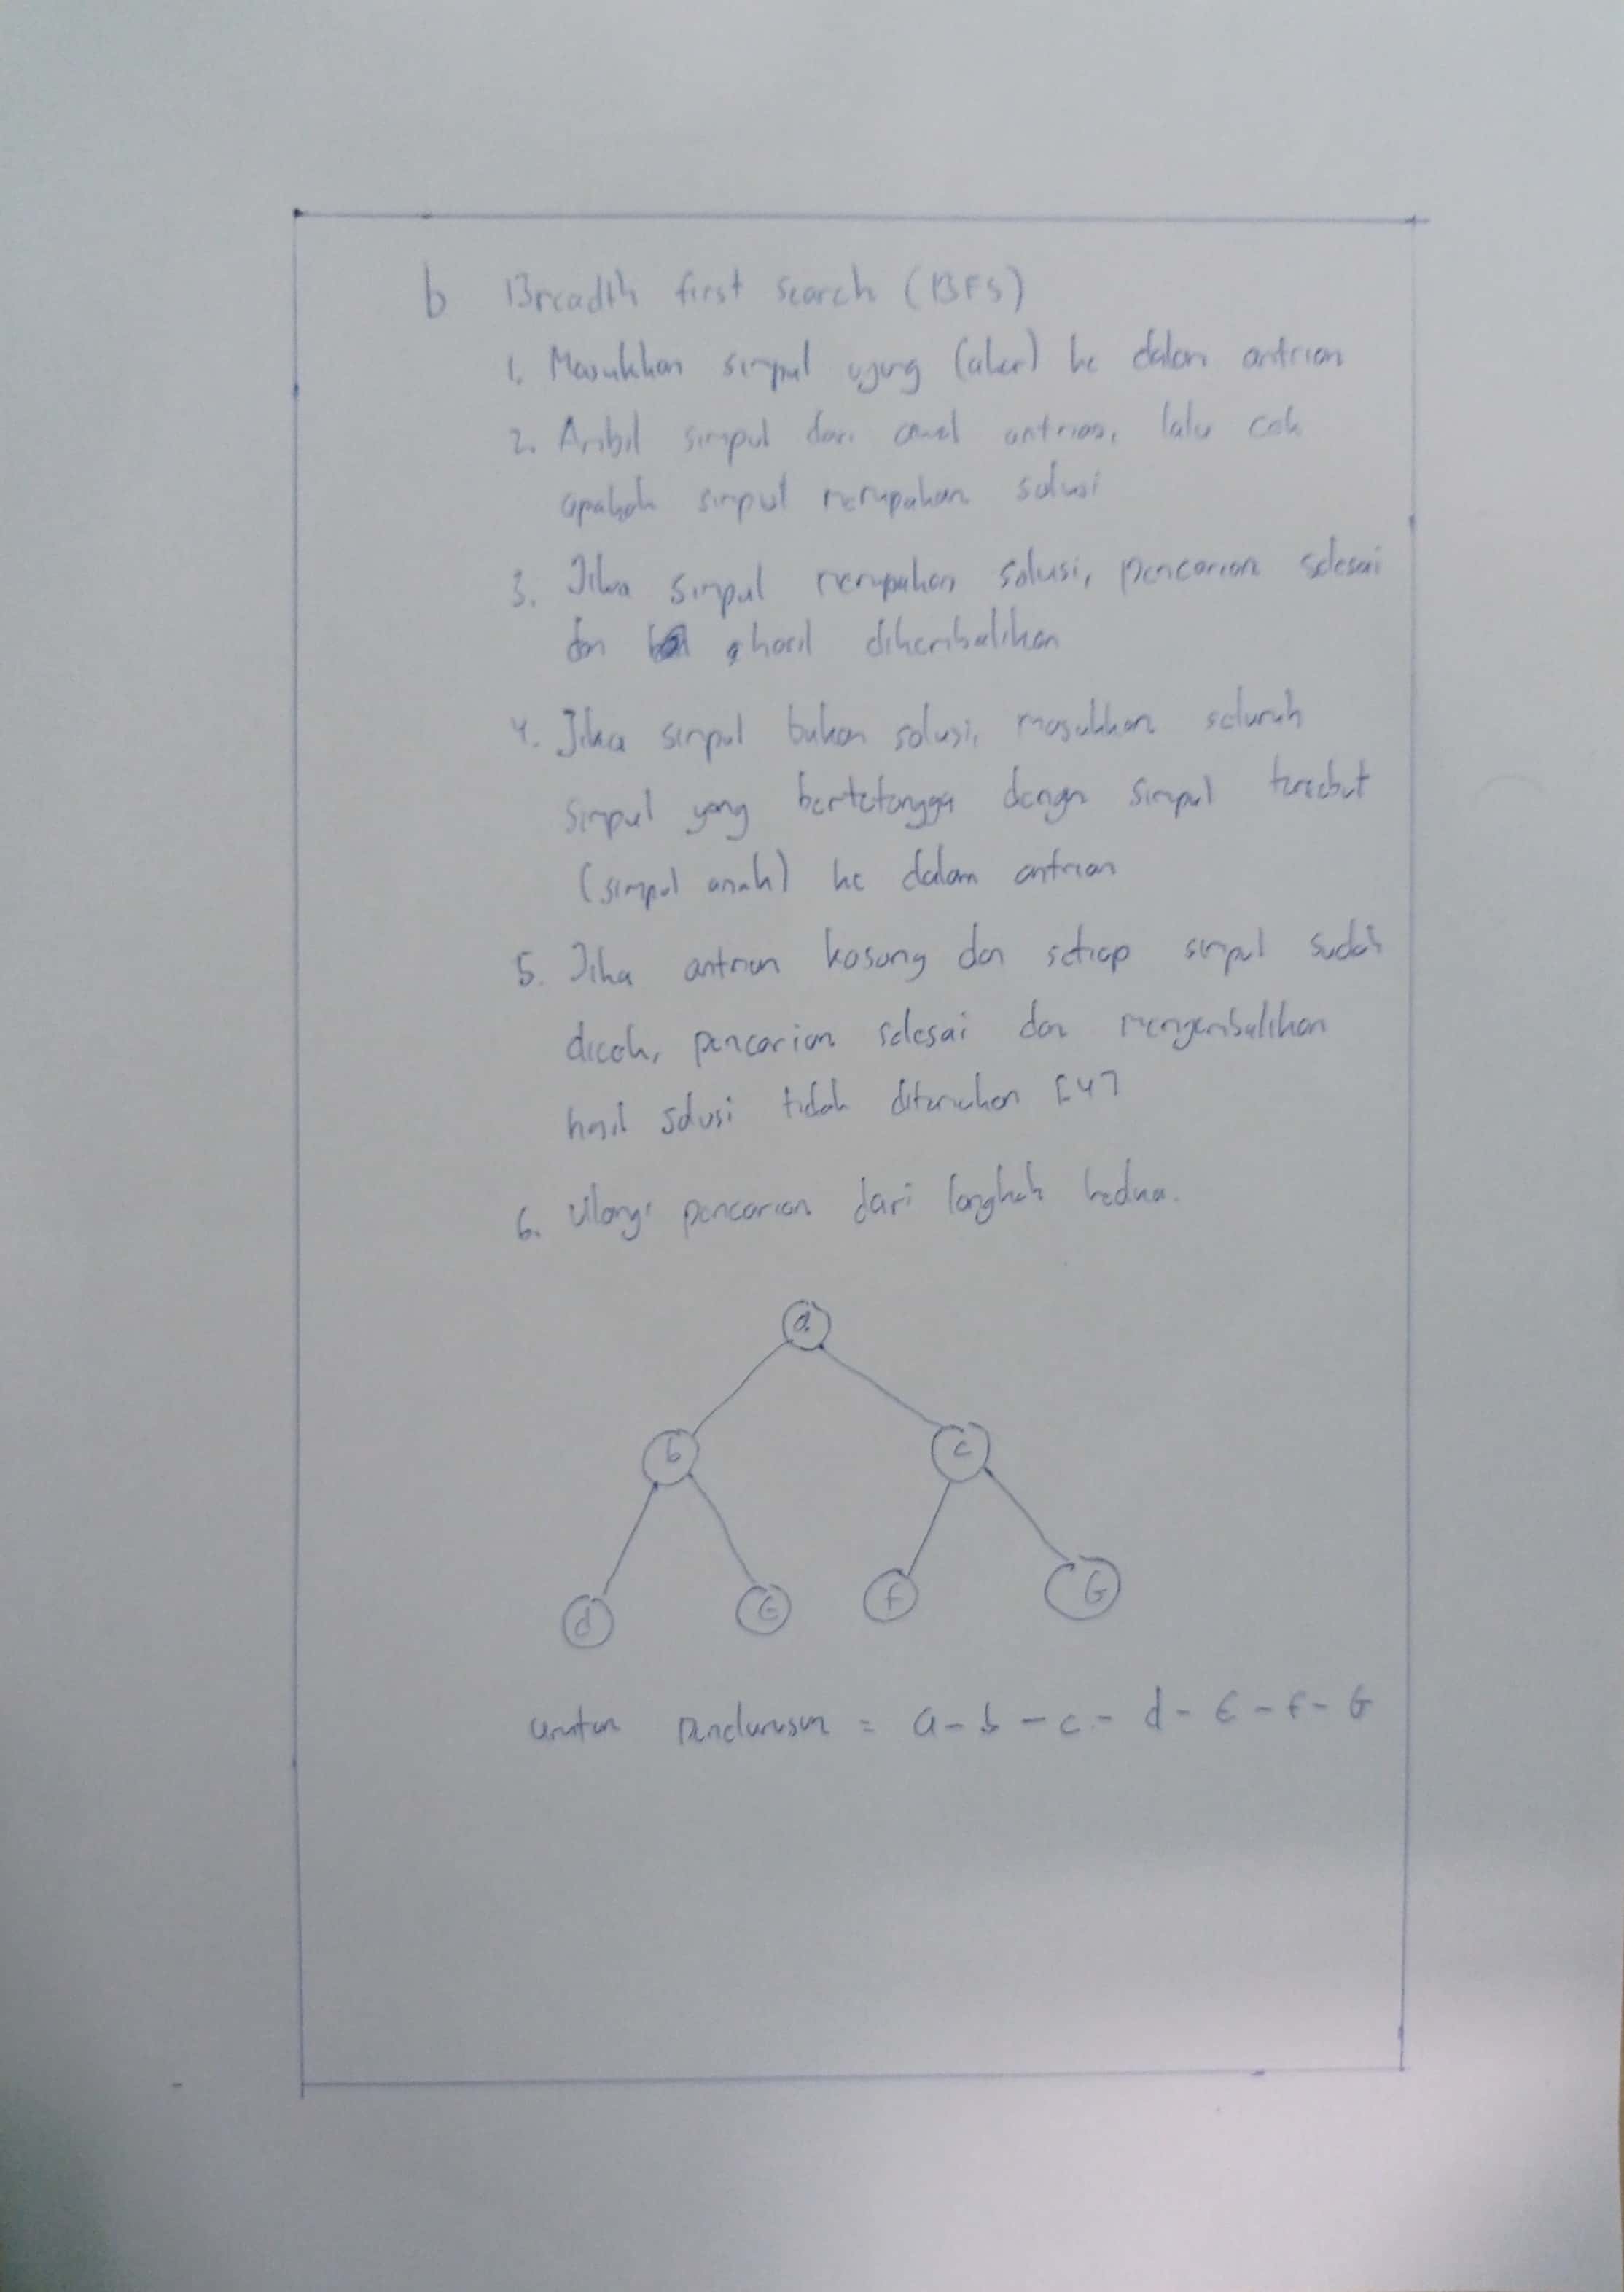 b Breadth first search (BFS)
1. Masukkan simpul ujung (akar) ke dalam antrian
2. Ambil simpul dari awal antrian, lalu cek
apakah simpul merupakan solusi
3. Jika simpul merupakan solusi, pencarian selesai
dan hasil dikembalikan
4. Jika simpul bukan solusi, masukkan seluruh
simpul yang bertetangga dengan simpul tersebut
(simpul anak) ke dalam antrian
5. Jika antrian kosong dan setiap simpul sudah
dicek, pencarian selesai dan mengembalikan
hasil solusi tidak ditemukan [4]
6. Ulangi pencarian dari langkah kedua.
a
b c
d E f G
urutan penelurusan = a - b - c - d - E - f - G